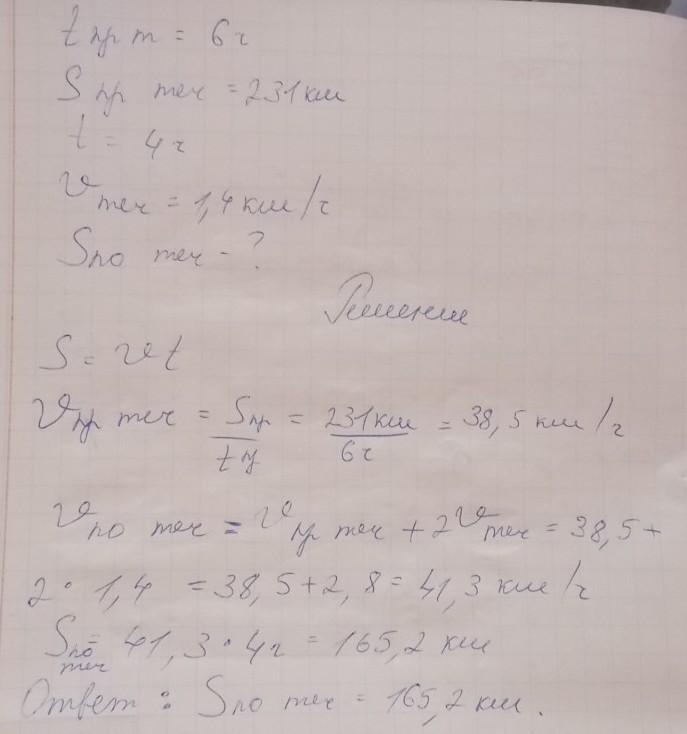 t пр т = 6 ч
S пр теч = 231 км
t = 4 ч
v теч = 1,4 км/ч
S по теч - ?
Решение
S = vt
v пр теч = S пр / t пр = 231 км / 6 ч = 38,5 км/ч
v по теч = v пр теч + 2v теч = 38,5 +
2 · 1,4 = 38,5 + 2,8 = 41,3 км/ч
S по теч = 41,3 · 4 ч = 165,2 км
Ответ : S по теч = 165,2 км.